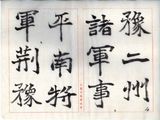 豫二州
諸軍事
平南將
軍荊豫